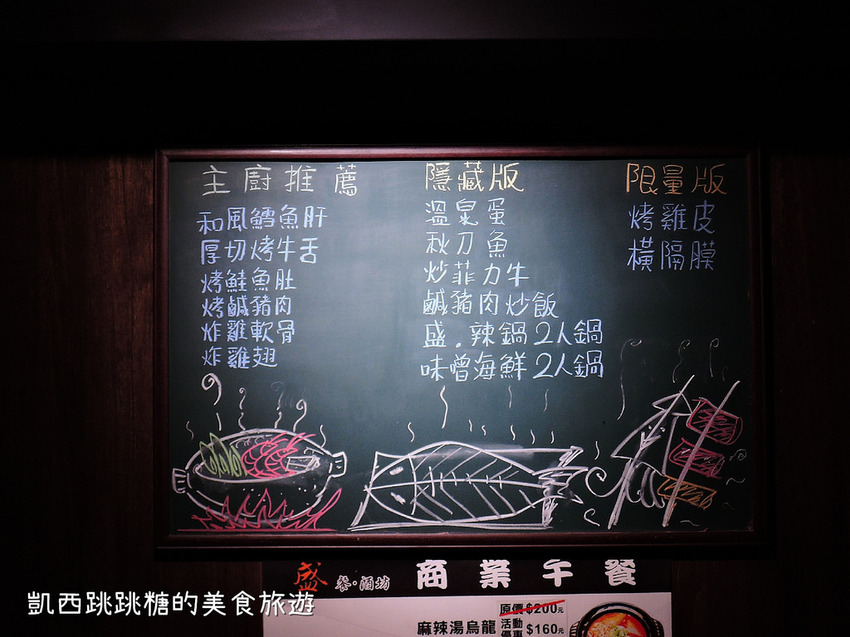 主廚推薦
和風鱈魚肝
厚切烤牛舌
烤鮭魚肚
烤鹹豬肉
炸雞軟骨
炸雞翅
隱藏版
溫泉蛋
秋刀魚
炒菲力牛
鹹豬肉炒飯
盛.辣鍋2人鍋
味噌海鮮2人鍋
限量版
烤雞皮
橫隔膜
盛 餐·酒坊 商業午餐
麻辣湯烏龍
原價$200元
活動優惠$160元
凱西跳跳糖的美食旅遊